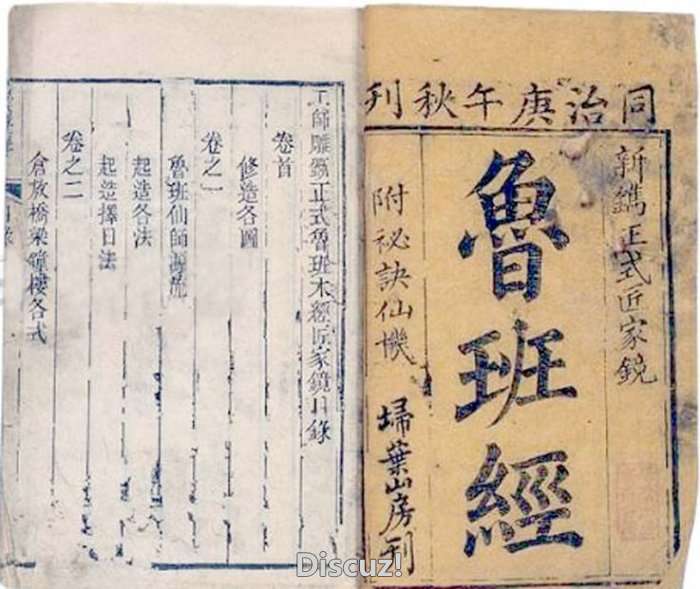 同治庚午秋刊
新鐫正式匠家鏡
魯班經
附祕訣仙機
埽葉山房刊
工師雕斵正式魯班木經匠家鏡目錄
卷首
修造各圖
卷之一
魯班仙師源流
起造各法
起造擇日法
卷之二
倉敖橋梁鐘樓各式
Discuz!